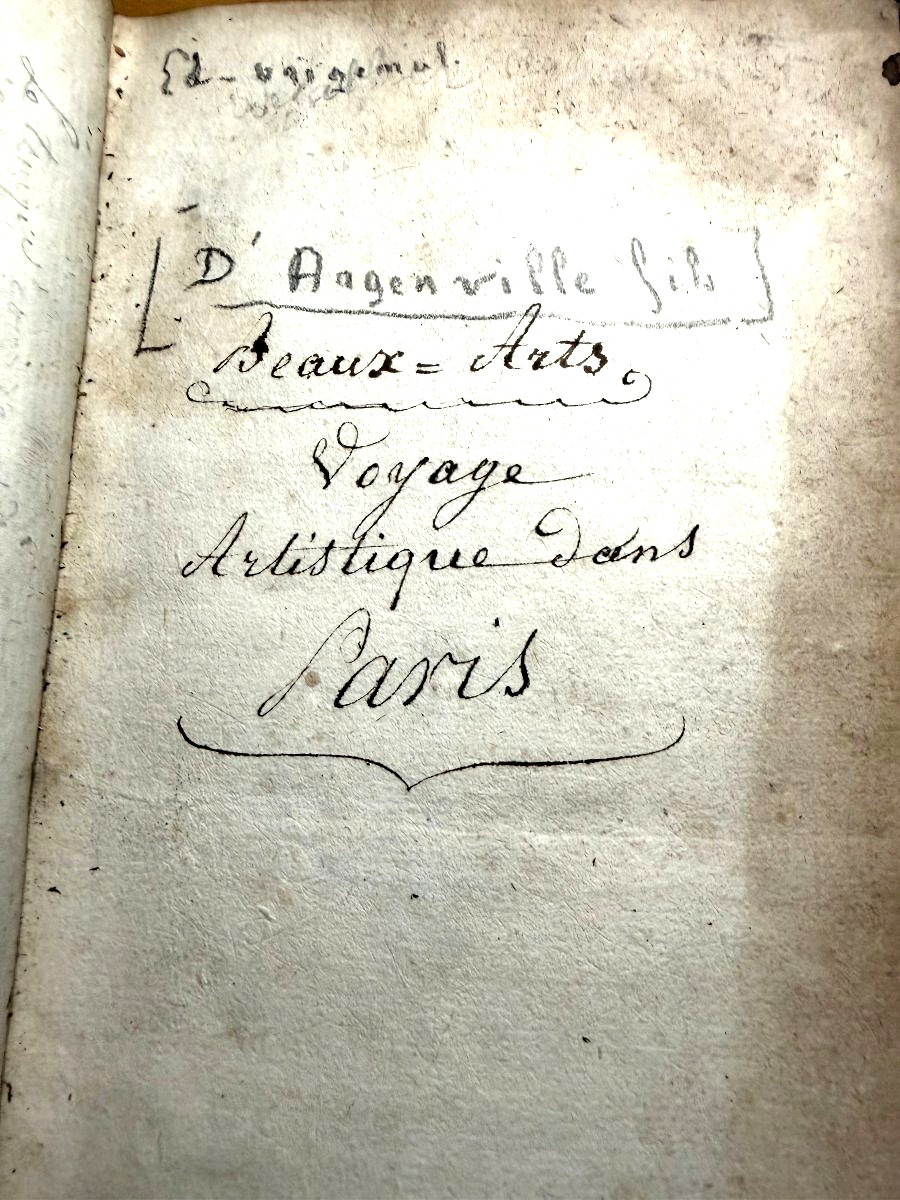 [D' Argenville fils]
Beaux = Arts.
Voyage
Artistique dans
Paris